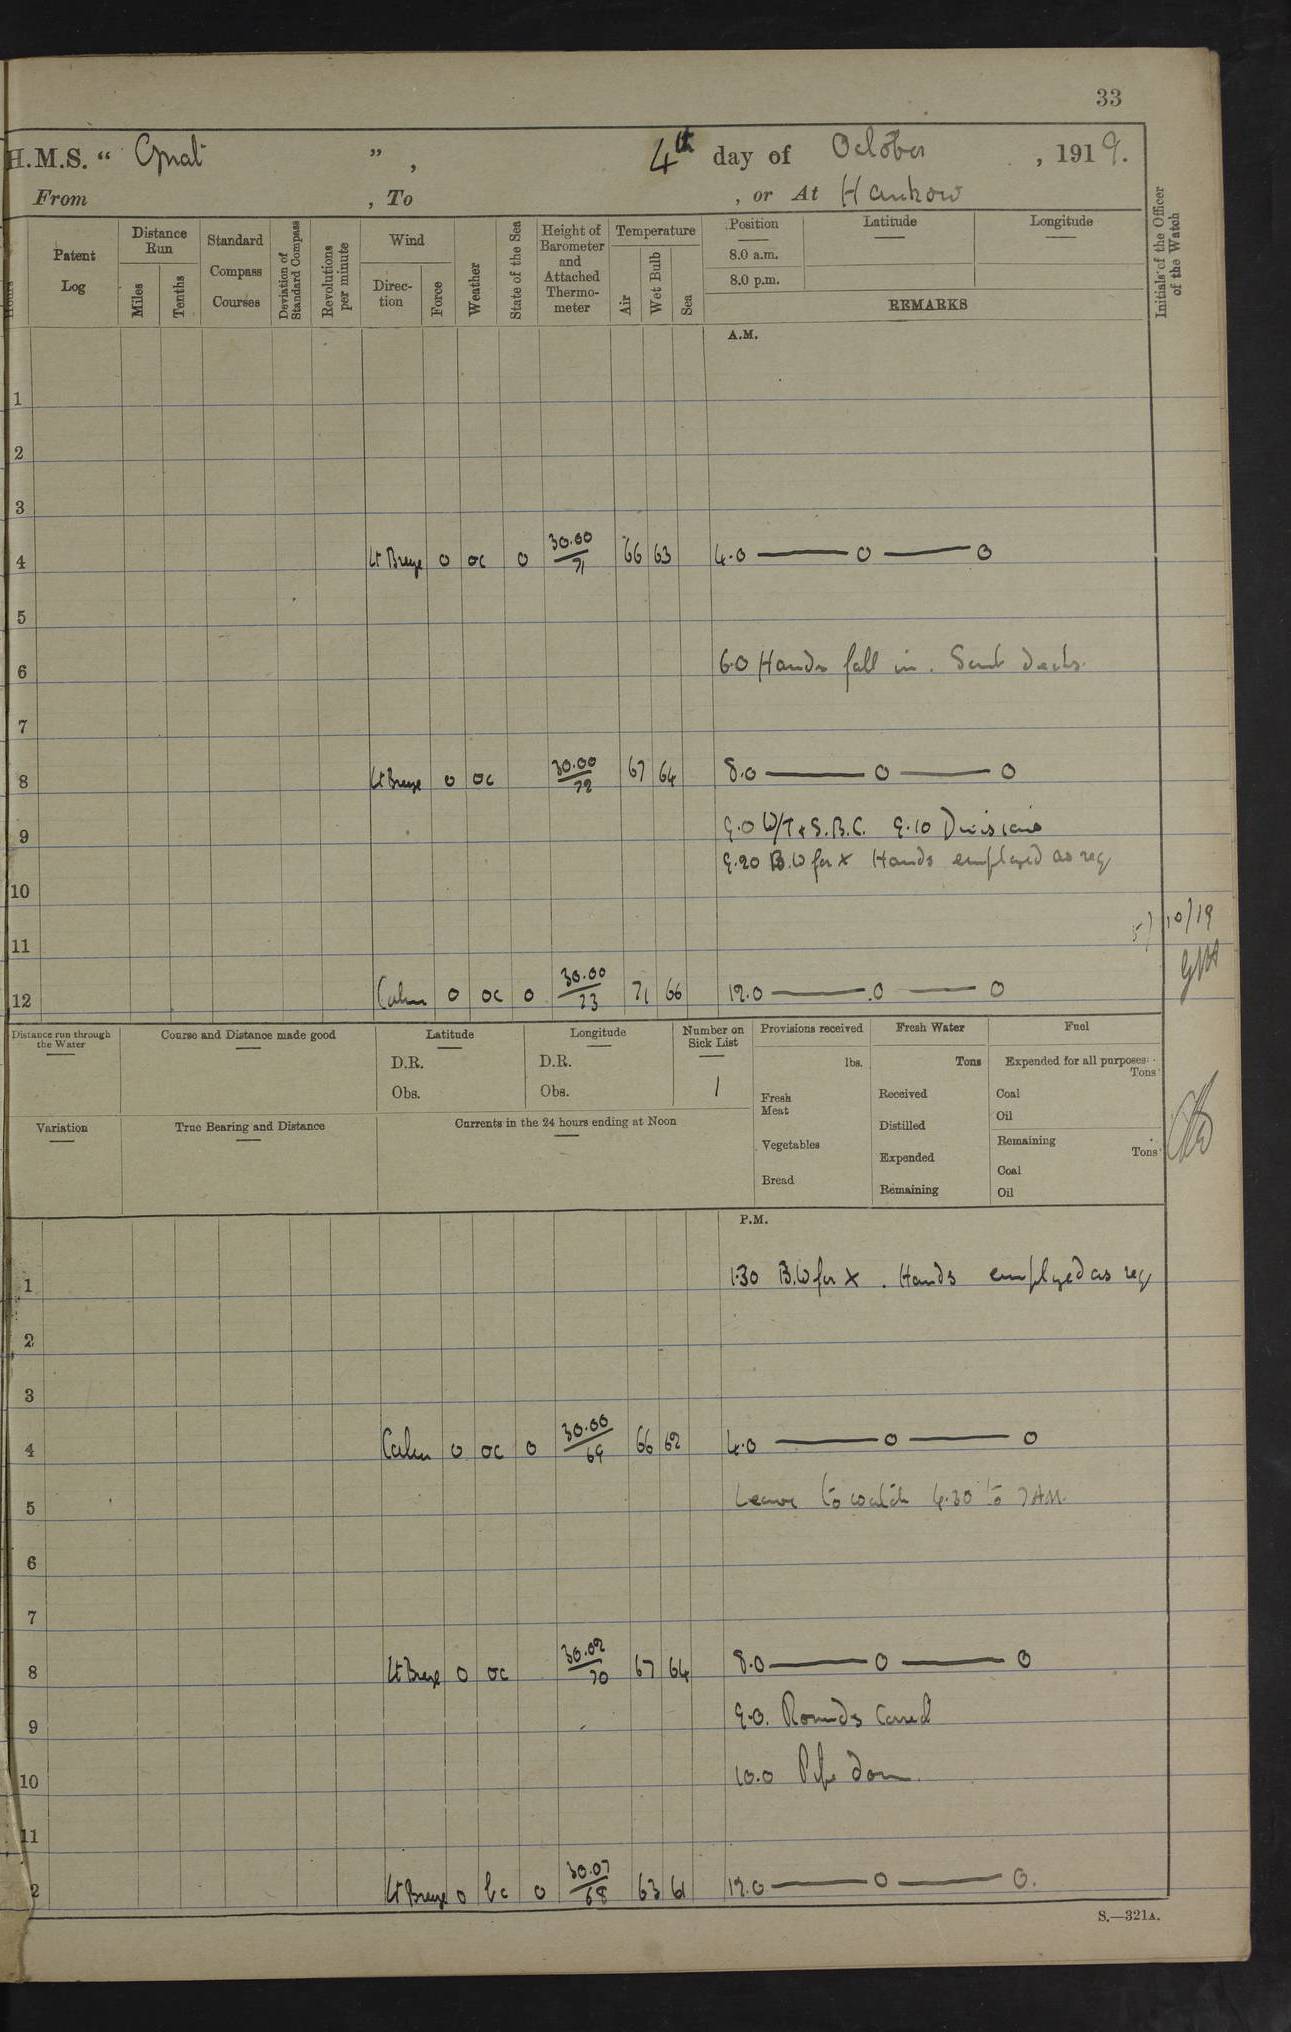 33
H.M.S. “ Gnat ” , 4th day of October , 1919.
From , To , or At Hankow
Hours
Patent Log
Distance Run
Miles
Tenths
Standard Compass Courses
Deviation of Standard Compass
Revolutions per minute
Wind
Direction
Force
Weather
State of the Sea
Height of Barometer and Attached Thermometer
Temperature
Air
Wet Bulb
Sea
Position
8.0 a.m.
8.0 p.m.
Latitude
Longitude
REMARKS
Initials of the Officer of the Watch
A.M.
1
2
3
4 Lt Breze 0 oc 0 30.00/71 66 63 4.0 —— 0 —— 0
5
6 6.0 Hands fall in. Scrub decks.
7
8 Lt Breze 0 oc 30.00/72 67 64 8.0 —— 0 —— 0
9 9.0 W/T & S.B.C. 9.10 Divisions
9.20 B.W for X Hands employed as req
10
11
5/10/19
12 Calm 0 oc 0 30.00/73 71 66 12.0 —— 0 —— 0
Distance run through the Water
Course and Distance made good
Latitude
D.R.
Obs.
Longitude
D.R.
Obs.
Number on Sick List
1
Provisions received
lbs.
Fresh Meat
Vegetables
Bread
Fresh Water
Tons
Received
Distilled
Expended
Remaining
Fuel
Expended for all purposes:
Tons
Coal
Oil
Remaining
Tons
Coal
Oil
Variation
True Bearing and Distance
Currents in the 24 hours ending at Noon
P.M.
1 1.30 B.W for X. Hands employed as req
2
3
4 Calm 0 oc 0 30.00/69 66 62 4.0 —— 0 —— 0
5 Leave to watch 4.30 to 7 AM.
6
7
8 Lt Breze 0 oc 30.02/70 67 64 8.0 —— 0 —— 0
9 9.0. Rounds Correct
10 10.0 Pipe down.
11
2 Lt Breze 0 bc 0 30.07/68 63 61 12.0 —— 0 —— 0.
S.—321A.